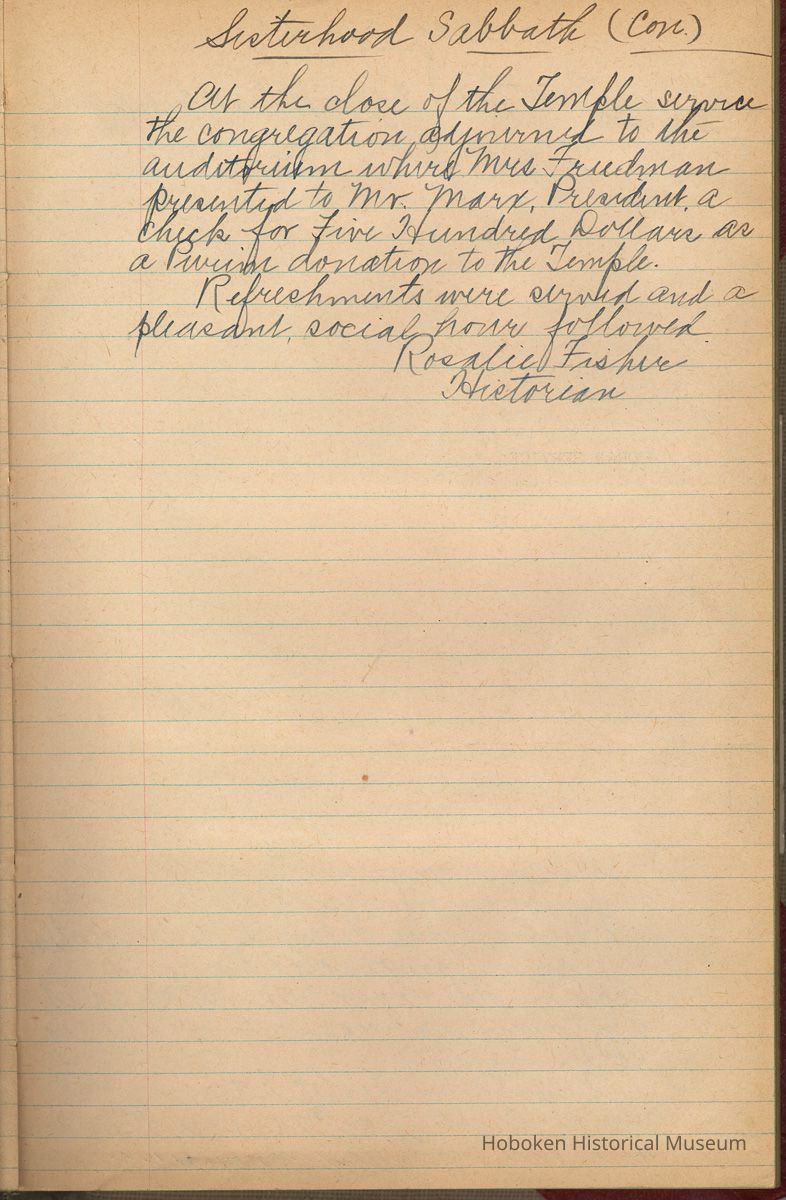 Sisterhood Sabbath (Con.)
At the close of the Temple service
the congregation adjourned to the
auditorium where Mrs Friedman
presented to Mr. Marx, President, a
check for Five Hundred Dollars as
a Purim donation to the Temple.
Refreshments were served and a
pleasant, social hour followed
Rosalie Fisher
Historian
Hoboken Historical Museum